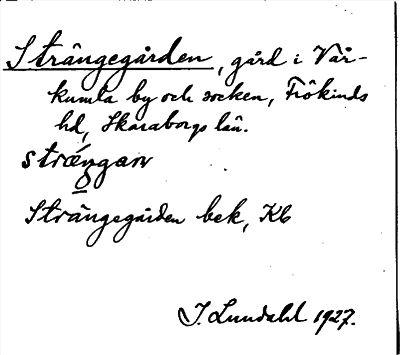 Strängegården, gård i Vår-
kumla by och socken, Frökinds
hd, Skaraborgs län.
strængaṇ
o
Strängegården bek, Kb
J. Lundahl 1927.